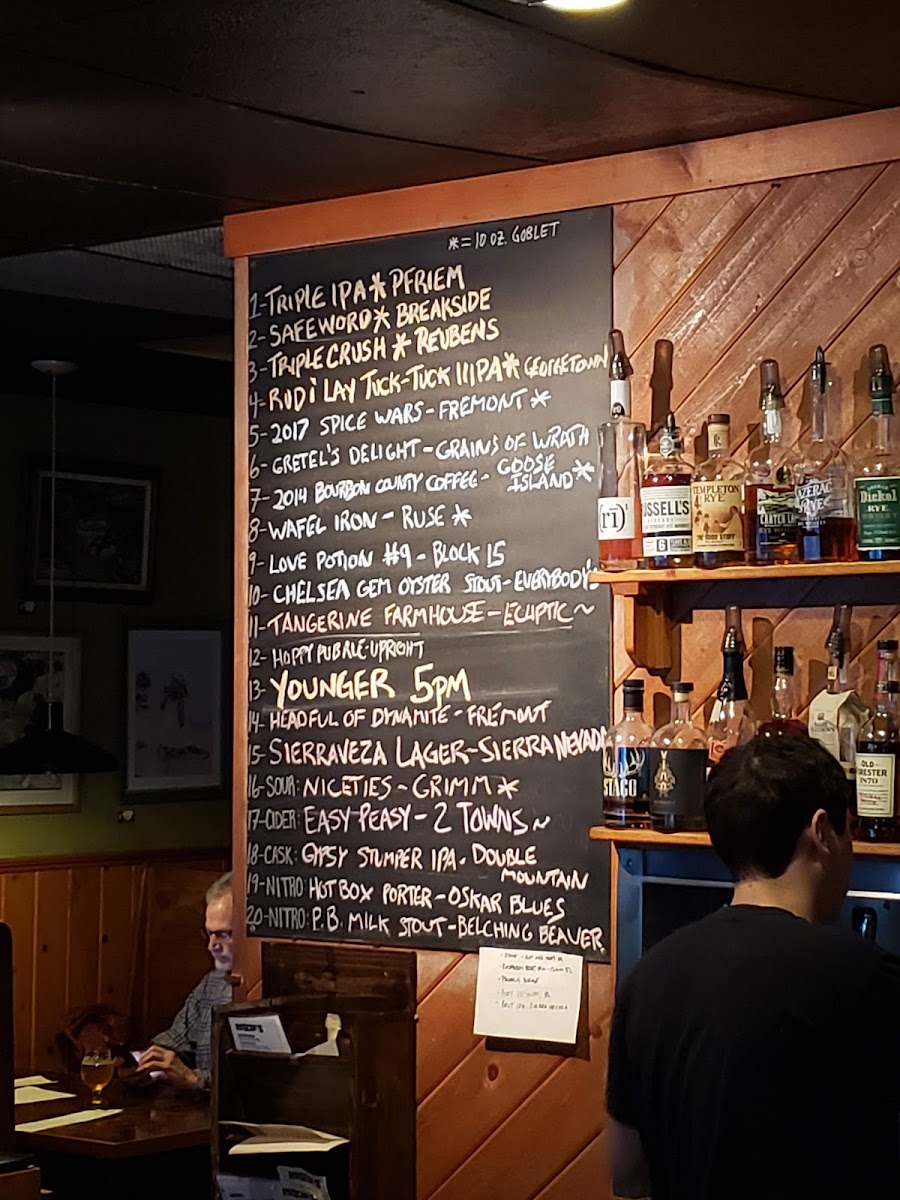 *=10 OZ. GOBLET
1-TRIPLE IPA* PFRIEM
2-SAFEWORD* BREAKSIDE
3-TRIPLE CRUSH * REUBENS
4-RUDI LAY TUCK-TUCK IIIPA* GEORGETOWN
5-2017 SPICE WARS-FREMONT *
6-GRETEL'S DELIGHT-GRAINS OF WRATH
7-2014 BOURBON COUNTY COFFEE-GOOSE ISLAND*
8-WAFEL IRON-RUSE *
9-LOVE POTION #9-BLOCK 15
10-CHELSEA GEM OYSTER STOUT-EVERYBODY'S
11-TANGERINE FARMHOUSE-ECLIPTIC~
12-HOPPY PUB ALE-UPRIGHT
13-YOUNGER 5PM
14-HEADFUL OF DYNAMITE-FREMONT
15-SIERRAVEZA LAGER-SIERRA NEVADA
16-SOUR: NICETIES-GRIMM*
17-CIDER: EASY PEASY-2 TOWNS~
18-CASK: GYPSY STUMPER IPA-DOUBLE
MOUNTAIN
19-NITRO: HOT BOX PORTER-OSKAR BLUES
20-NITRO: P.B. MILK STOUT-BELCHING BEAVER
ri)¹
RUSSELL'S
6
TEMPLETON
RYE
THE GOOD STUFF
SAZERAC
RYE
Dickel
RYE
STAGG
OLD
FORESTER
1870